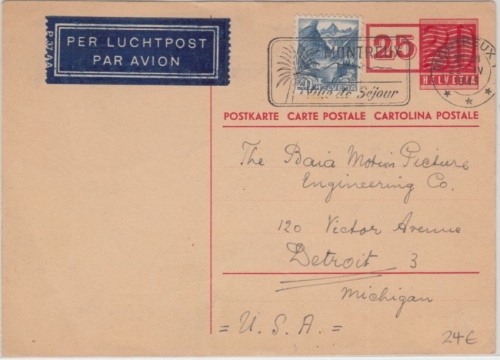 P. 37. A 4
PER LUCHTPOST
PAR AVION
25
MONTREUX
Ville de Séjour
HELVETIA
POSTKARTE CARTE POSTALE CARTOLINA POSTALE
The Baia Motion Picture
Engineering Co.
120 Victor Avenue
Detroit 3
Michigan
= U. S. A. =
24€